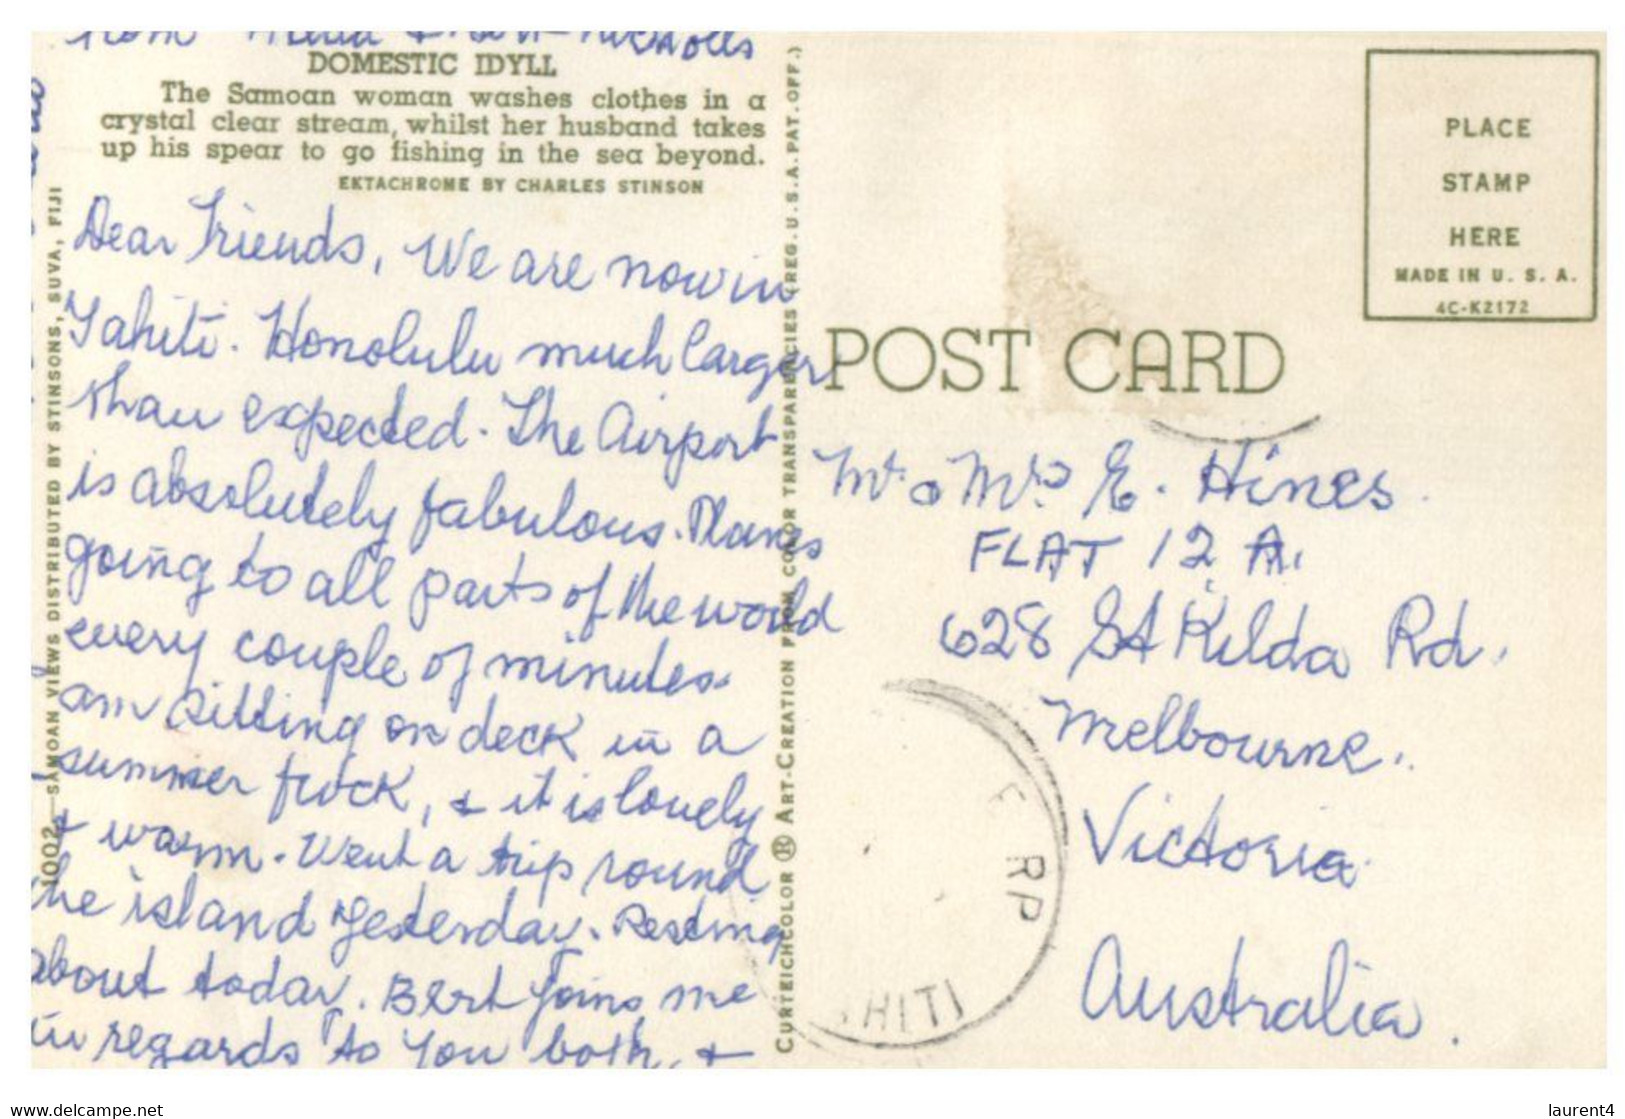 DOMESTIC IDYLL
The Samoan woman washes clothes in a
crystal clear stream, whilst her husband takes
up his spear to go fishing in the sea beyond.
EKTACHROME BY CHARLES STINSON
Dear Friends, We are now in
Tahiti. Honolulu much larger
than expected. The Airport
is absolutely fabulous. Planes
going to all parts of the world
every couple of minutes.
am sitting on deck in a
summer frock, & it is lovely
& warm. Went a trip round
the island yesterday. Resting
about today. Bert joins me
in regards to you both, &
from & Nicholls
1002—SAMOAN VIEWS DISTRIBUTED BY STINSONS, SUVA, FIJI
CURTEICHCOLOR ® ART-CREATION FROM COLOR TRANSPARENCIES (REG. U.S.A. PAT. OFF.)
PLACE
STAMP
HERE
MADE IN U. S. A.
4C-K2172
POST CARD
Mr. & Mrs E. Hines
FLAT 12 A.
628 St Kilda Rd.
Melbourne.
Victoria
Australia.
E RP
HITI
www.delcampe.net
laurent4